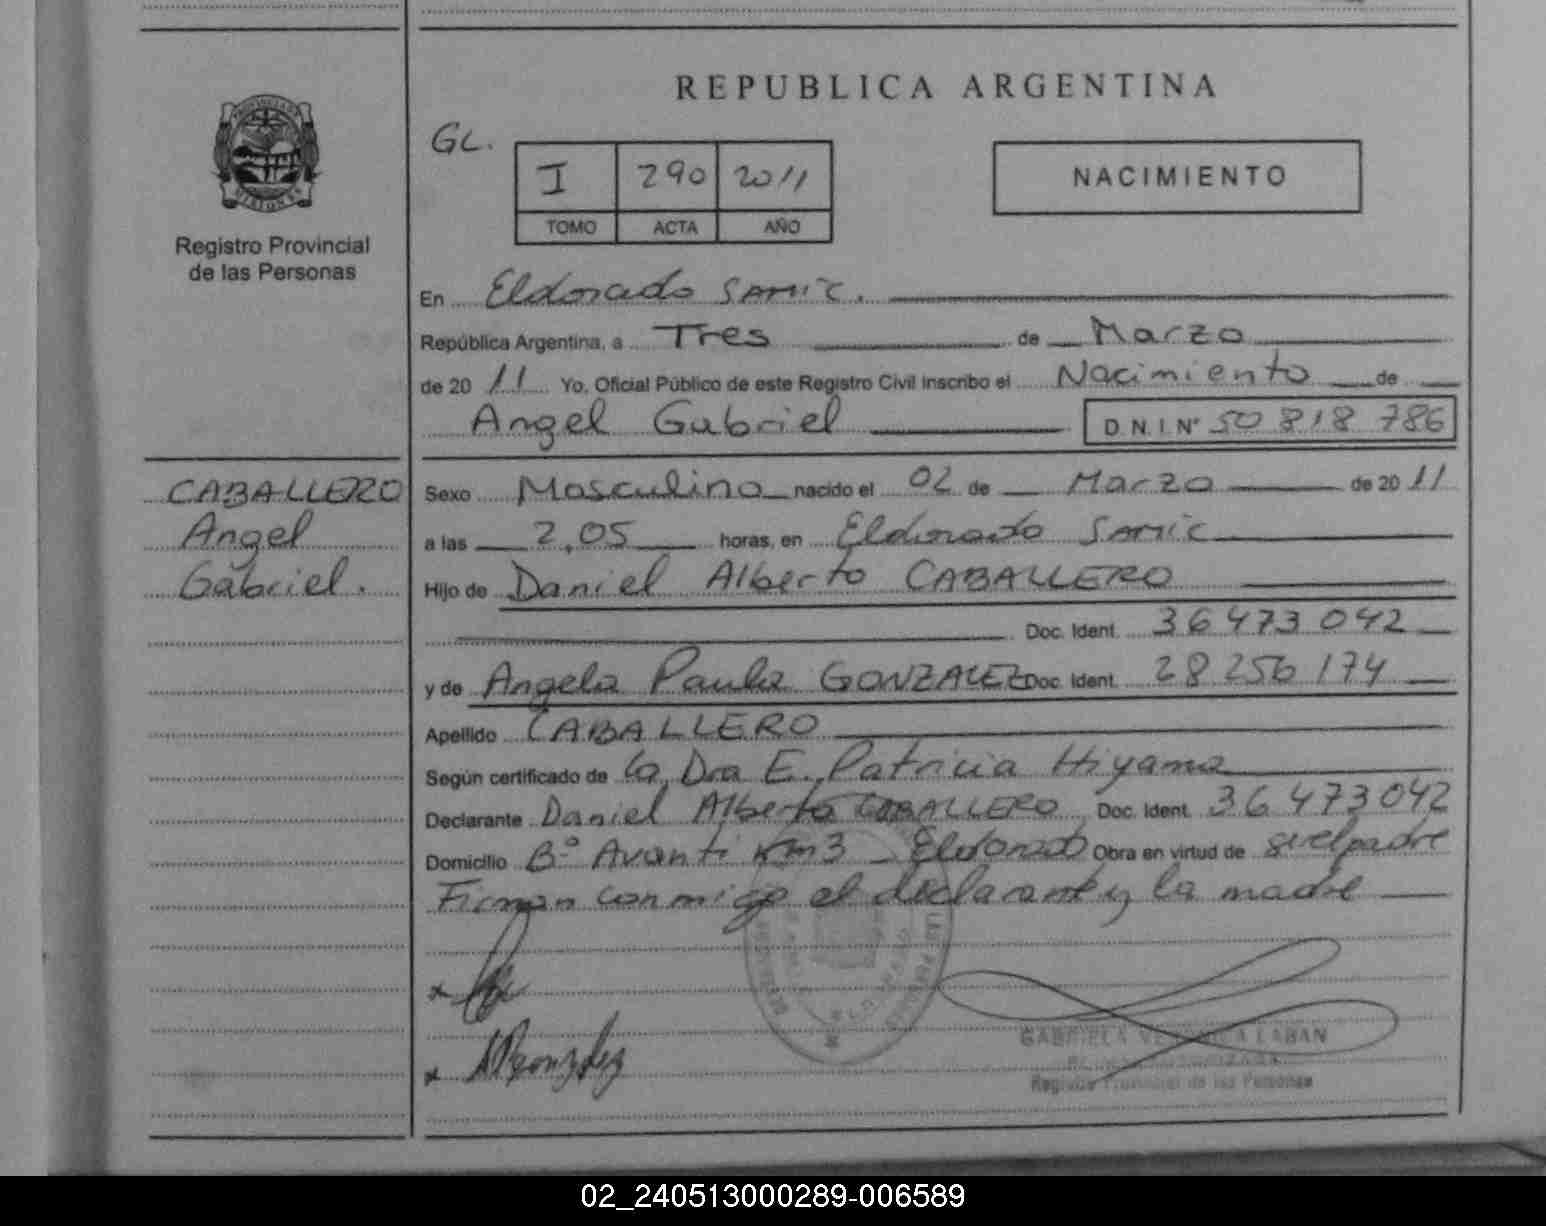 REPUBLICA ARGENTINA
GL.
I 290 2011
TOMO ACTA AÑO
NACIMIENTO
Registro Provincial
de las Personas
En Eldorado SAMIC.
República Argentina, a Tres de Marzo
de 20 11 Yo, Oficial Público de este Registro Civil inscribo el Nacimiento de
Angel Gabriel D.N.I.Nº 50 818 786
CABALLERO
Angel
Gabriel.
Sexo Masculino nacido el 02 de Marzo de 20 11
a las 2,05 horas, en Eldorado SAMIC
Hijo de Daniel Alberto CABALLERO
Doc. Ident. 36 473 042
y de Angela Paula GONZALEZ Doc. Ident. 28 256 174
Apellido CABALLERO
Según certificado de la Dra E. Patricia Hiyama
Declarante Daniel Alberto CABALLERO Doc. Ident. 36 473 042
Domicilio Bº Avanti Km3 - Eldorado Obra en virtud de ser el padre
Firman conmigo el declarante y la madre
GABRIELA VERONICA LABAN
Registro Provincial de las Personas
02_240513000289-006589